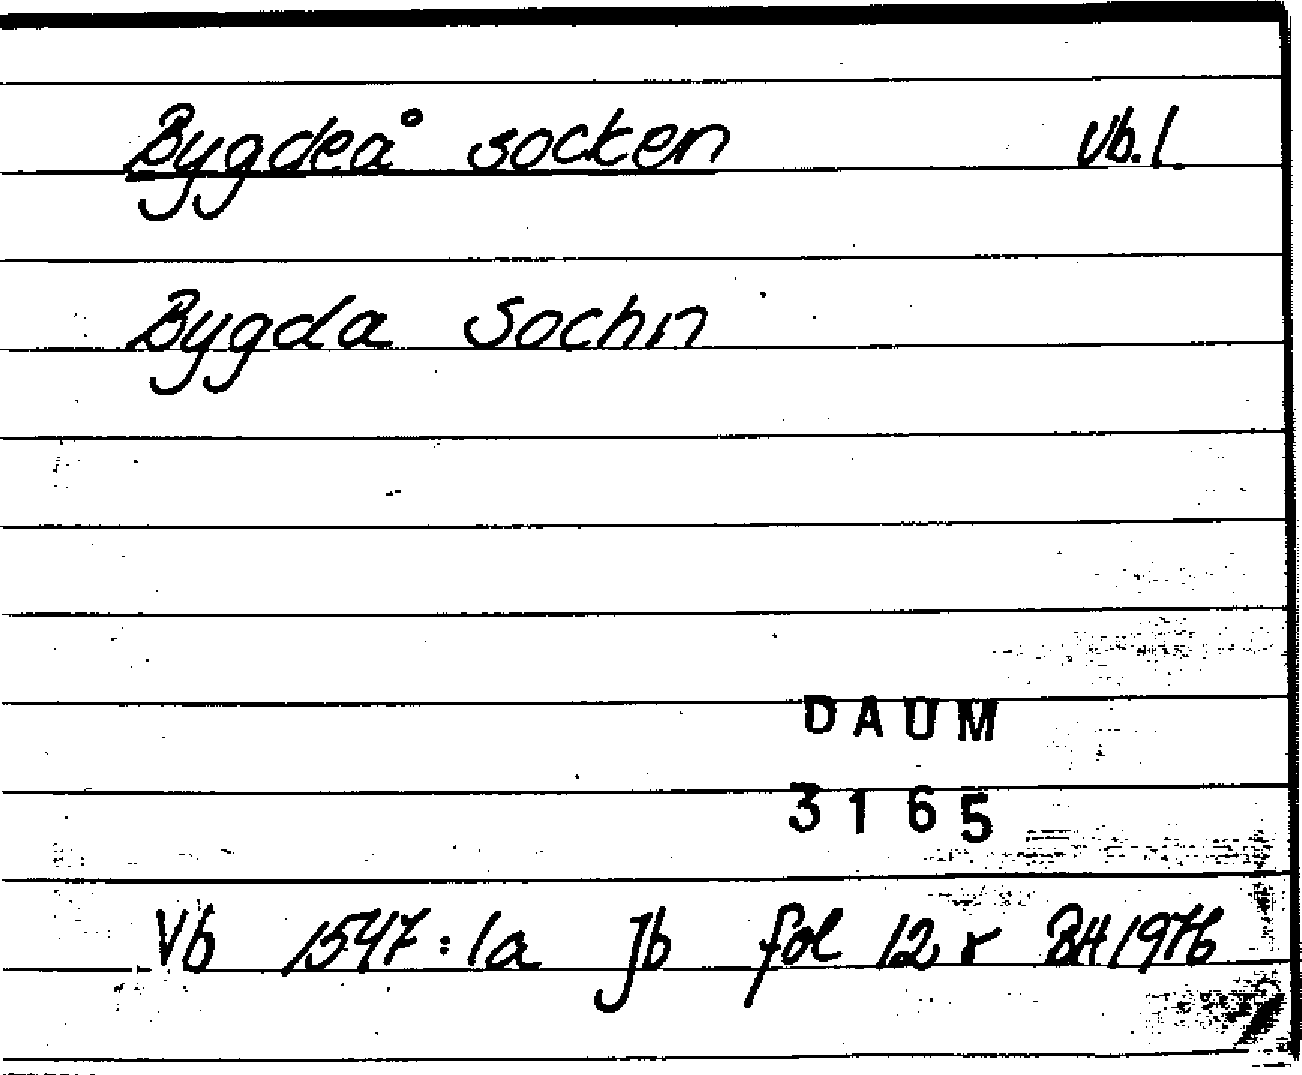 Bygdeå socken Vb. l.
Bygda Sochn
DAUM
3165
Vb 1547:1a Jb fol 12 r BH 1976